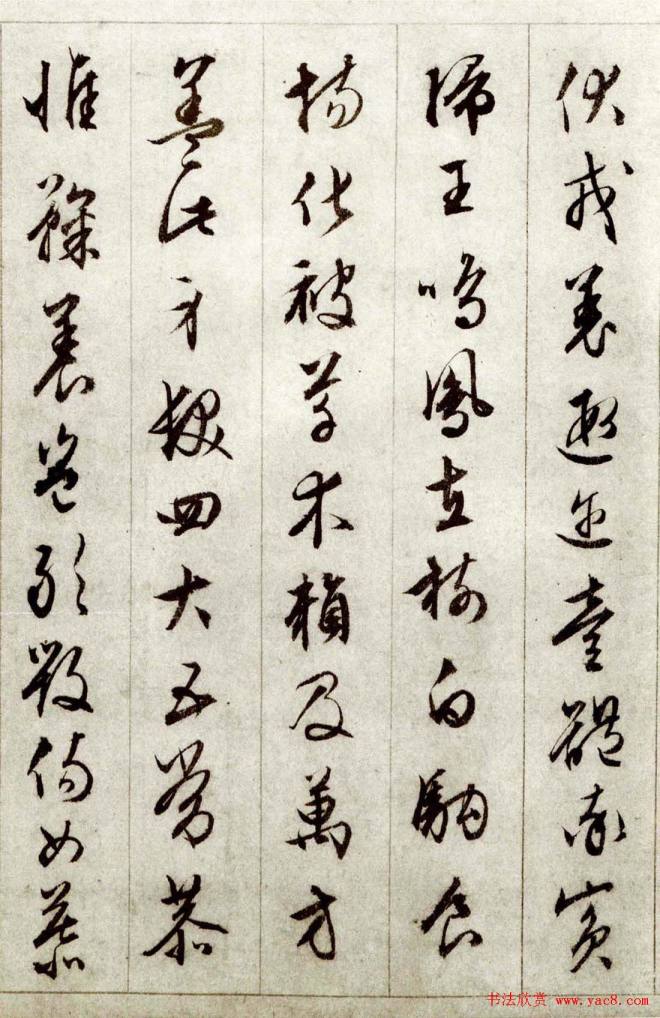 伏戎羌遐邇壹體率賓
歸王鳴鳳在樹白駒食
場化被草木賴及萬方
蓋此身髮四大五常恭
惟鞠養豈敢毀傷女慕
书法欣赏 www.yac8.com